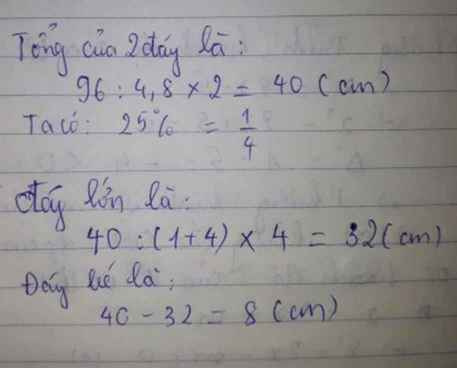 Tổng của 2 đáy là:
96 : 4,8 × 2 = 40 (cm)
Ta có: 25% = 1/4
đáy lớn là:
40 : (1+4) × 4 = 32 (cm)
Đáy bé là:
40 - 32 = 8 (cm)